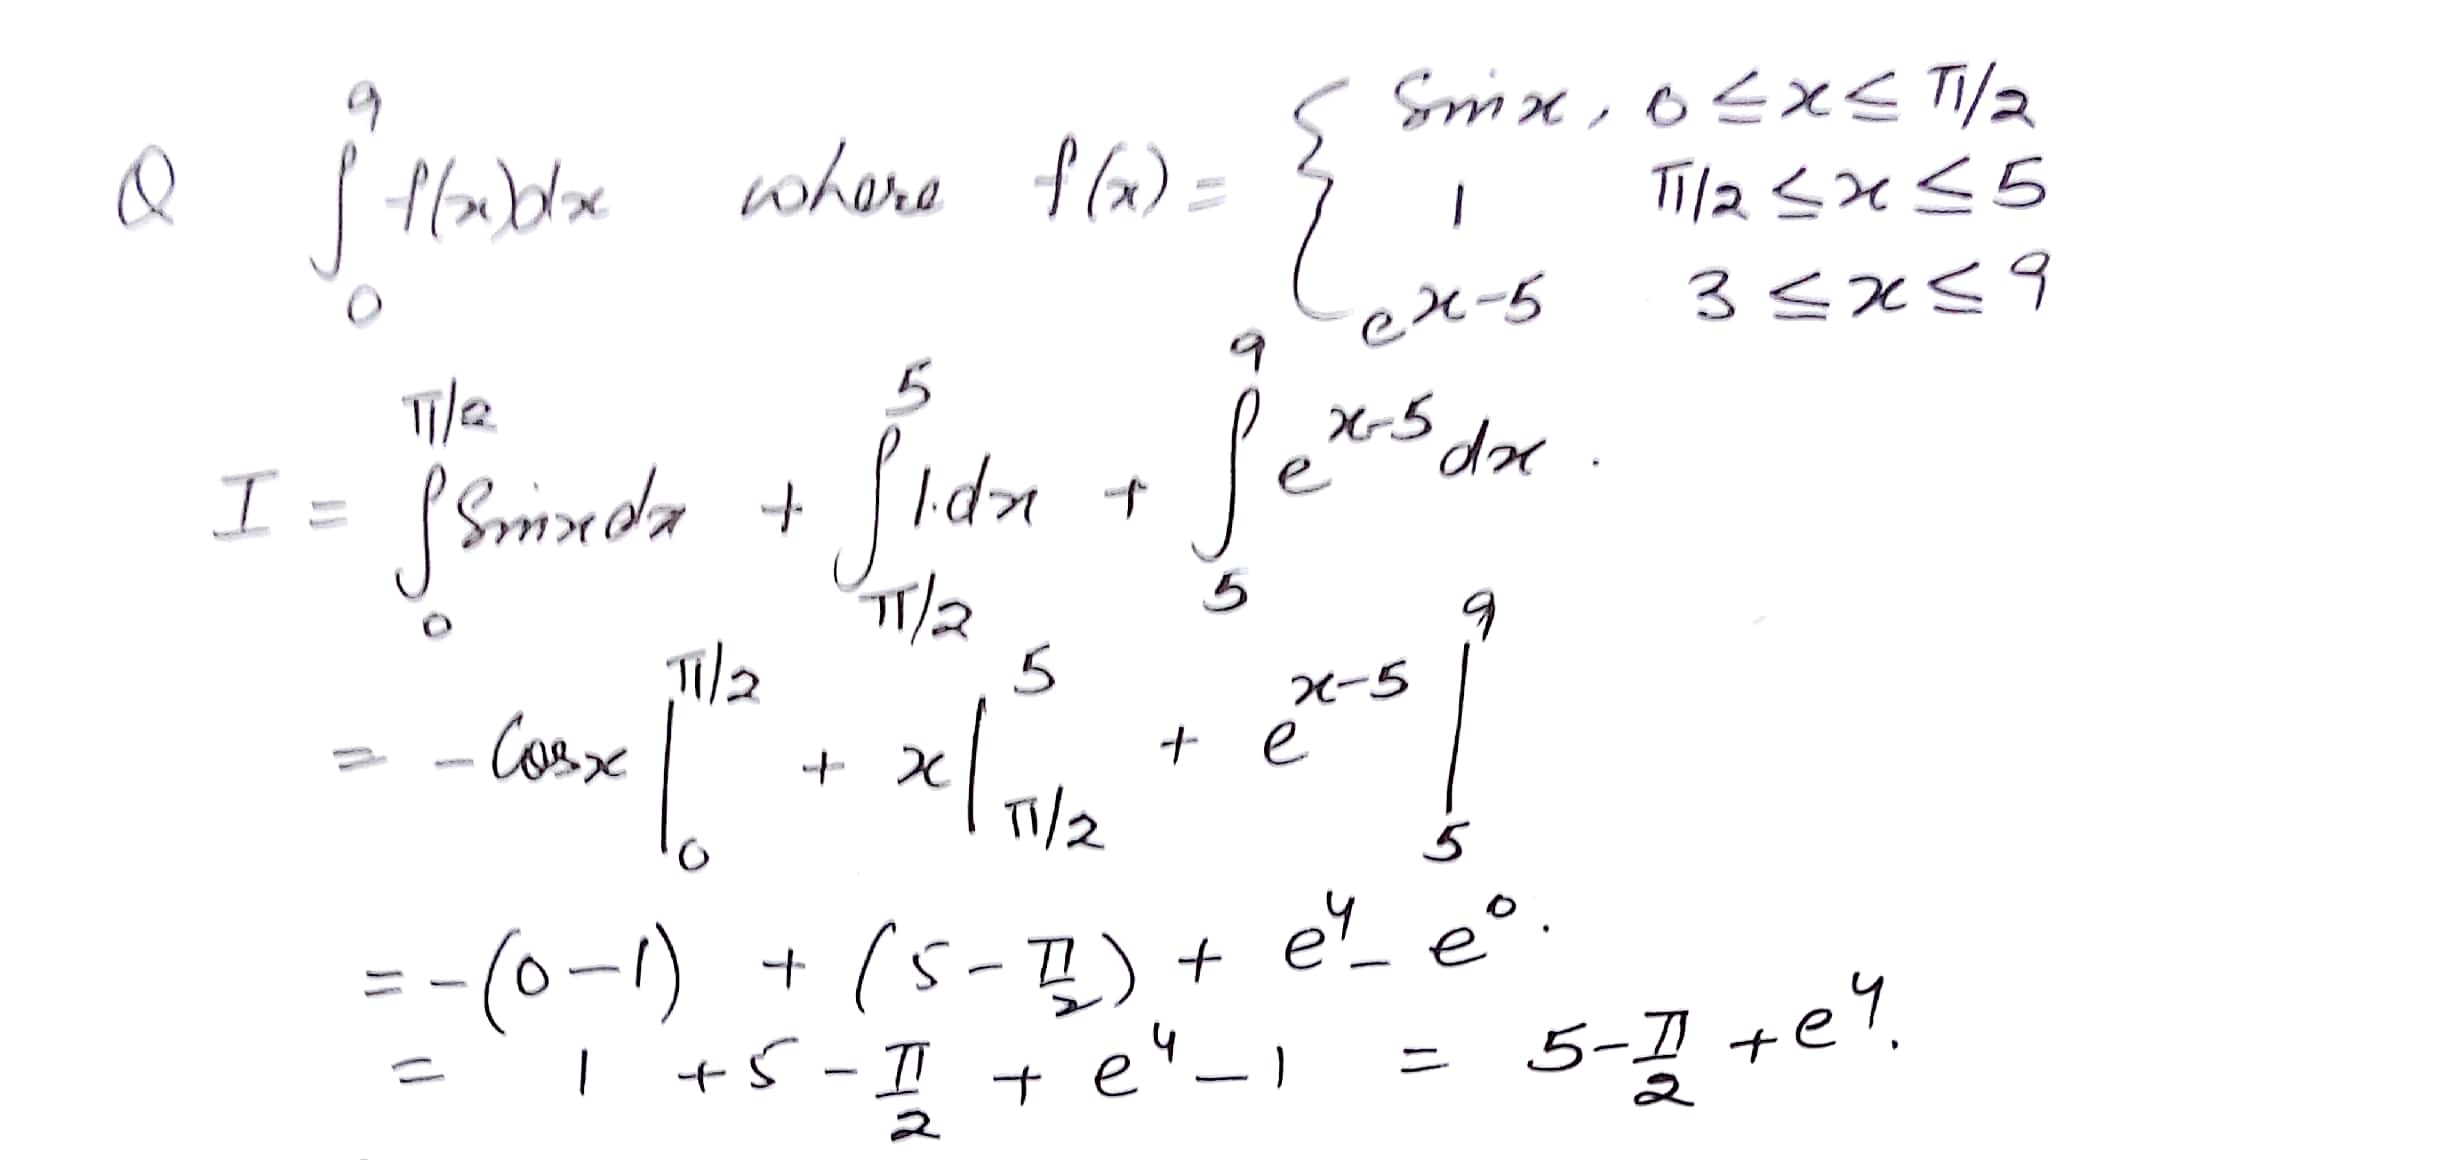 Q ∫₀⁹ f(x)dx where f(x) = { Sinx, 0 ≤ x ≤ π/2
1 π/2 ≤ x ≤ 5
e^{x-5} 3 ≤ x ≤ 9
I = ∫₀^{π/2} Sinx dx + ∫_{π/2}^{5} 1.dx + ∫₅⁹ e^{x-5} dx .
= - Cosx |₀^{π/2} + x |_{π/2}^{5} + e^{x-5} |₅⁹
= -(0-1) + (5 - π/2) + e⁴ - e⁰ .
= 1 + 5 - π/2 + e⁴ - 1 = 5 - π/2 + e⁴.